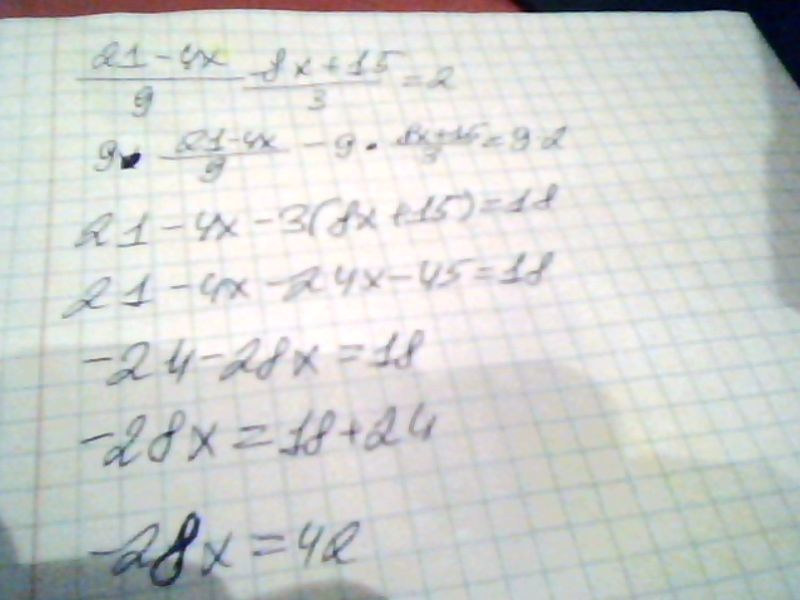 (21-4x)/9 - (8x+15)/3 = 2
9 · (21-4x)/9 - 9 · (8x+15)/3 = 9·2
21-4x-3(8x+15)=18
21-4x-24x-45=18
-24-28x=18
-28x=18+24
-28x=42